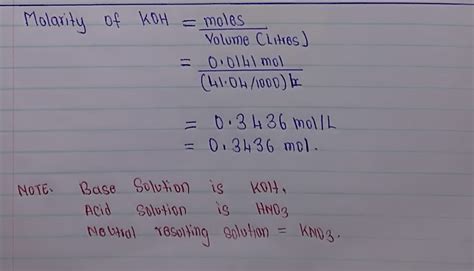 Molarity of KOH = moles
Volume (Litres)
= 0.0141 mol
(41.04/1000) L
= 0.3436 mol/L
= 0.3436 mol.
NOTE: Base Solution is KOH.
Acid Solution is HNO3
Neutral resulting solution = KNO3.